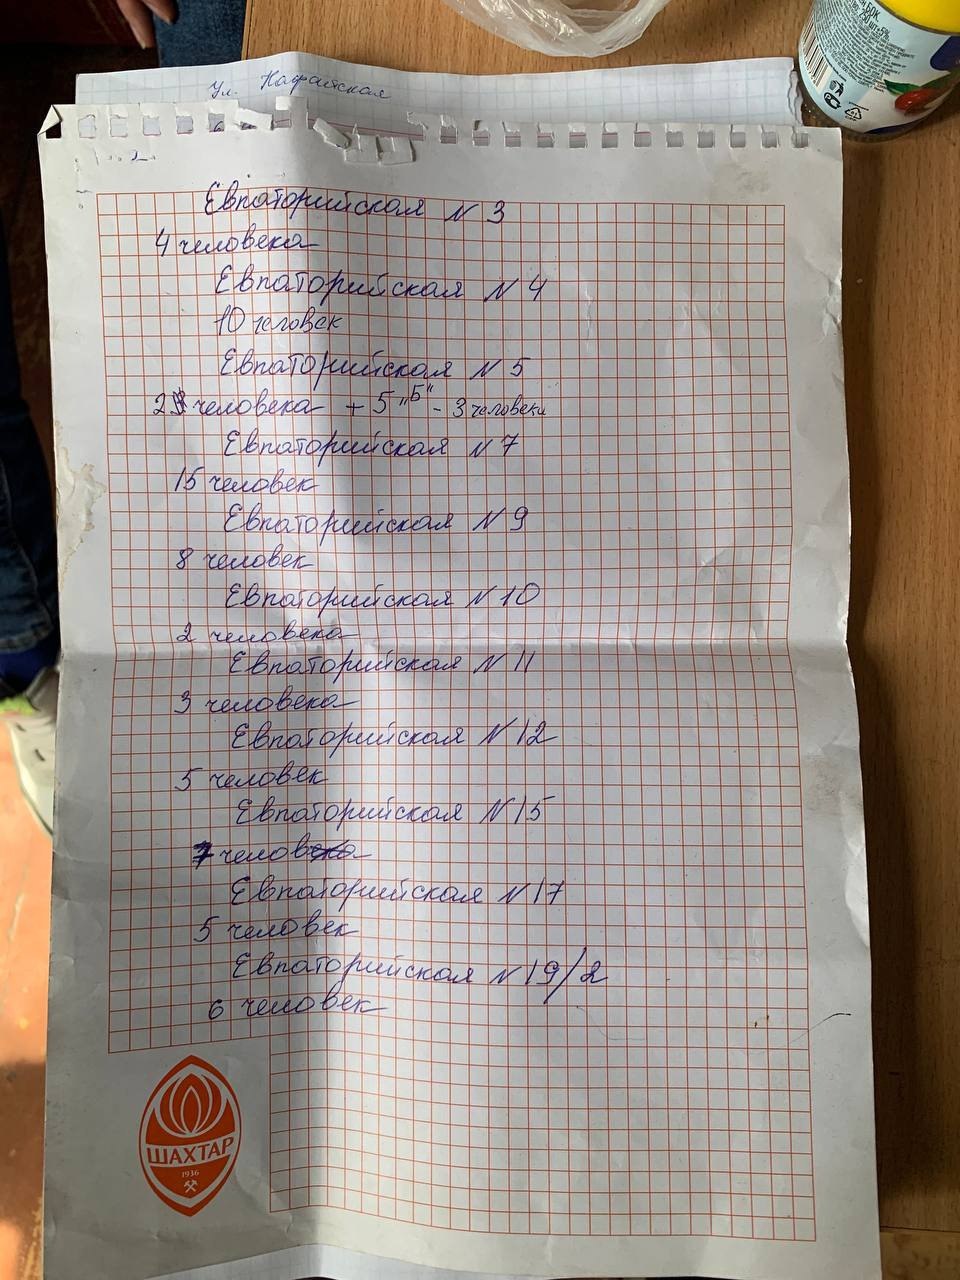 Ул. Кафайская
Евпаторийская N 3
4 человека
Евпаторийская N 4
10 человек
Евпаторийская N 5
2 человека + 5 "Б" - 3 человека
Евпаторийская N 7
15 человек
Евпаторийская N 9
8 человек
Евпаторийская N 10
2 человека
Евпаторийская N 11
3 человека
Евпаторийская N 12
5 человек
Евпаторийская N 15
7 человек
Евпаторийская N 17
5 человек
Евпаторийская N 19/2
6 человек
ШАХТАР
1936